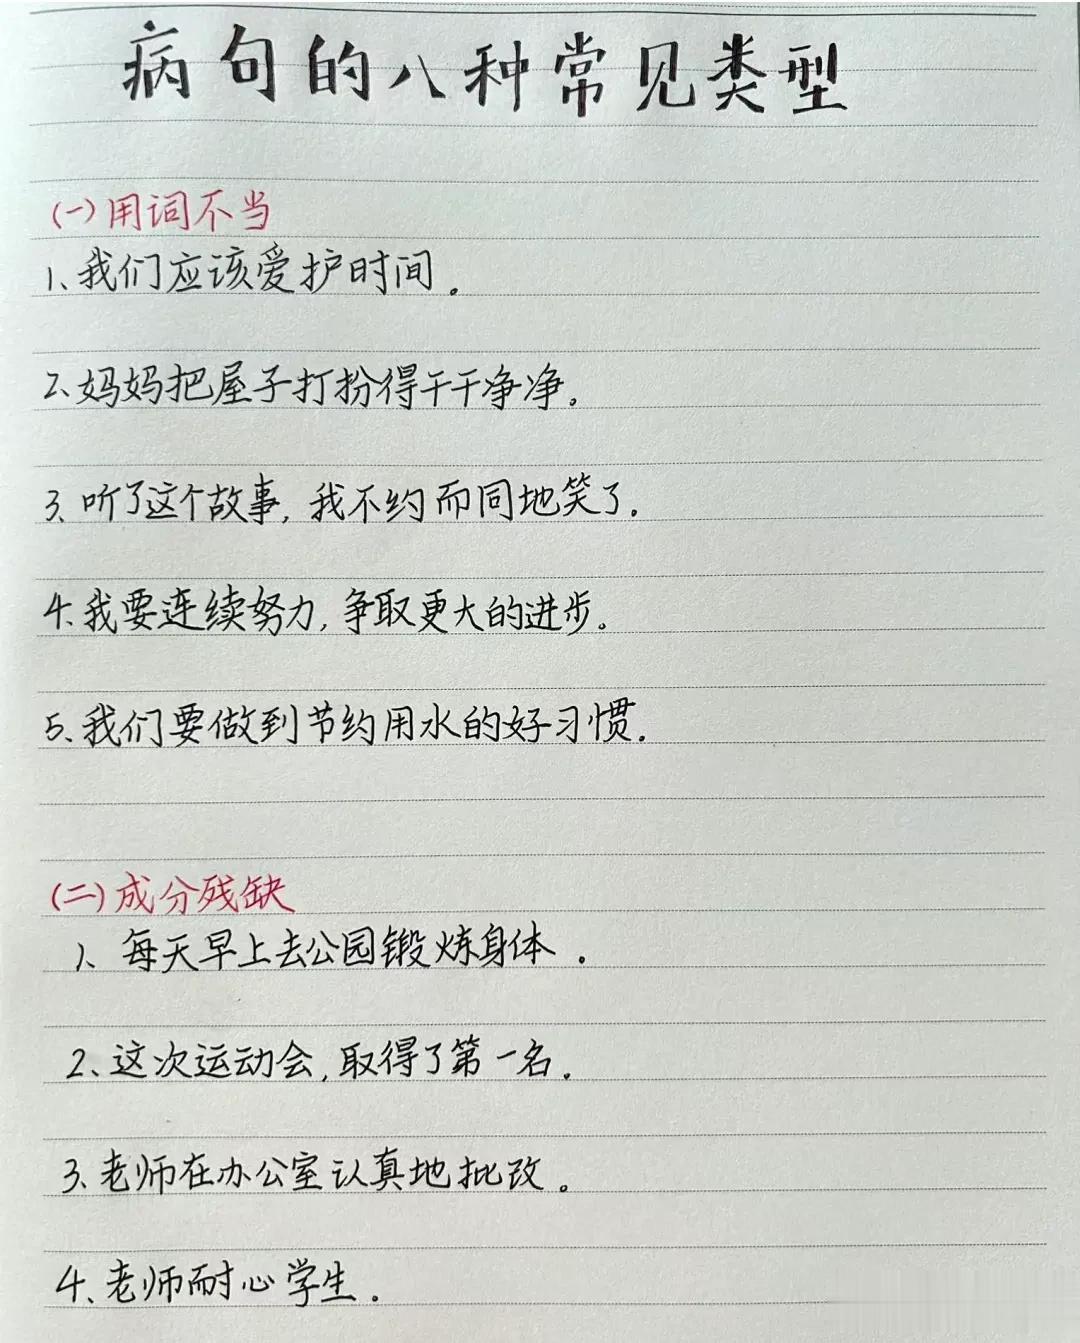 病句的八种常见类型
(一)用词不当
1、我们应该爱护时间。
2、妈妈把屋子打扮得干干净净。
3、听了这个故事,我不约而同地笑了。
4、我要连续努力,争取更大的进步。
5、我们要做到节约用水的好习惯。
(二)成分残缺
1、每天早上去公园锻炼身体。
2、这次运动会,取得了第一名。
3、老师在办公室认真地批改。
4、老师耐心学生。